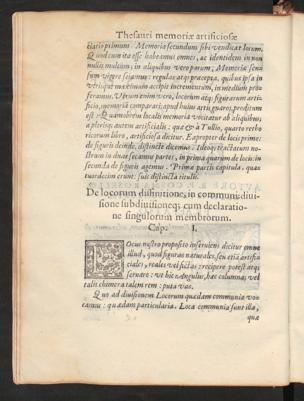 Thesauri memoriæ artificiosæ
claria primum. Memoria secundum sibi vendicat locum.
Quod cum ita esse habeamus omnes, ac identidem in non
nullis multum; in aliquibus vero parum; Memoriæ sensu
sum vigere sciamus: regulas atq; præcepta, quibus ipsa in
utrisque maximum accipit incrementum, in medium profe
seramus. Utrum enim vero, locorum atq; figurarum artifi
cio, memoria comparari, apud huius artis gnaros, exploratum
est: Quamobrem localis memoria vocitatur ab aliquibus,
a plerisq; autem artificialis: quæ & a Tullio, quarto retho
ricorum libro, artificiosa dicitur. Eapropter de locis primo:
de figuris deinde, distincte dicemus. Ideoq; tractatum no
strum in duas secamus partes, in prima quarum de locis: in
secunda de figuris agemus. Prima partis capitula, quæ
tuordecim erunt: sub distincta titulis.
De locorum distinctione, in communi: divi
sione subdivisioneq; cum declaratio
ne singulorum membrorum.
Cap. I.
Locus nostro proposito inserviens dicitur omne
illud, quod figuras naturales, seu etiã artifi
ciales, reales vel fictas: recipere potest atq;
servare: ut hic Angulus, hæc columna; vel
talis chimera talem rem: puta vas.
Quo ad divisionem Locorum quædam communia vo
camus: quædam particularia. Loca communia sunt illa,
quæ